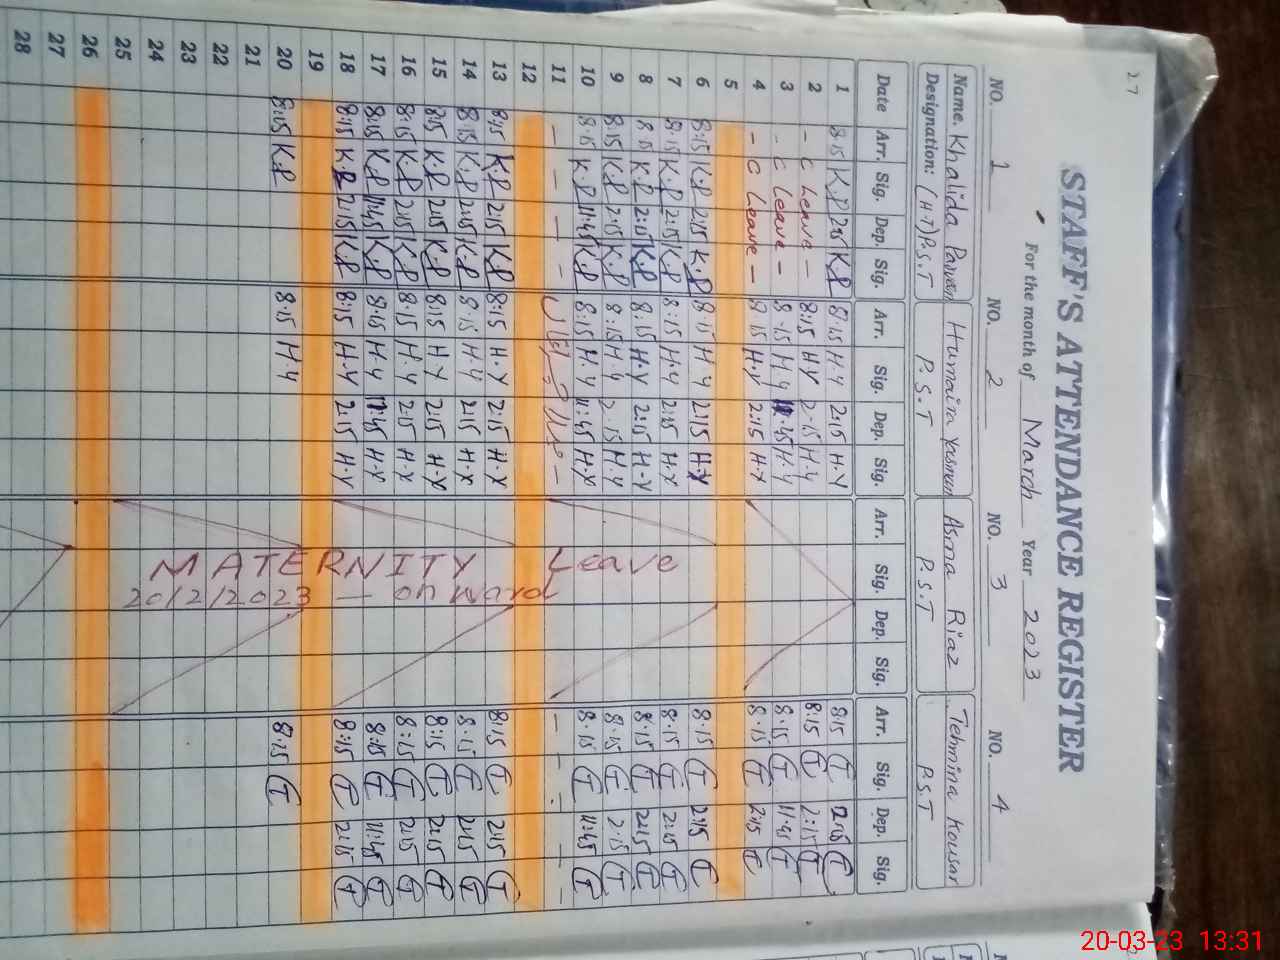 27
STAFF'S ATTENDANCE REGISTER
For the month of March Year 2023
NO. 1 NO. 2 NO. 3 NO. 4
Name. Khalida Parveen Humaira Yasmun Asma Riaz Tehmina Kousar
Designation: (H-T) P.S.T P.S.T P.S.T P.S.T
Date Arr. Sig. Dep. Sig. Arr. Sig. Dep. Sig. Arr. Sig. Dep. Sig. Arr. Sig. Dep. Sig.
1 8:15 K.P 2:15 K.P 8:15 H.Y 2:15 H.Y 8:15 T 12:15 T
2 - C Leave - 8:15 H.Y 2:15 H.Y 8:15 T 2:15 T
3 - C Leave - 8:15 H.Y 11:45 H.Y 8:15 T 11:45 T
4 - C Leave - 8:15 H.Y 2:15 H.Y 8:15 T 2:15 T
5
6 8:15 K.P 2:15 K.P 8:15 H.Y 2:15 H.Y 8:15 T 2:15 T
7 8:15 K.P 2:15 K.P 8:15 H.Y 2:15 H.Y 8:15 T 2:15 T
8 8:15 K.P 2:15 K.P 8:15 H.Y 2:15 H.Y 8:15 T 2:15 T
9 8:15 K.P 2:15 K.P 8:15 H.Y 2:15 H.Y 8:15 T 2:15 T
10 8:15 K.P 11:45 K.P 8:15 H.Y 11:45 H.Y 8:15 T 11:45 T
11 - - - - - - - -
12
13 8:15 K.P 2:15 K.P 8:15 H.Y 2:15 H.Y 8:15 T 2:15 T
14 8:15 K.P 2:15 K.P 8:15 H.Y 2:15 H.Y 8:15 T 2:15 T
15 8:15 K.P 2:15 K.P 8:15 H.Y 2:15 H.Y 8:15 T 2:15 T
16 8:15 K.P 2:15 K.P 8:15 H.Y 2:15 H.Y 8:15 T 2:15 T
17 8:15 K.P 11:45 K.P 8:15 H.Y 11:45 H.Y 8:15 T 11:45 T
18 8:15 K.P 2:15 K.P 8:15 H.Y 2:15 H.Y 8:15 T 2:15 T
19
20 8:15 K.P 8:15 H.Y 8:15 T
21
22
23
24
25
26
27
28
MATERNITY Leave
20/2/2023 — onward
20-03-23 13:31